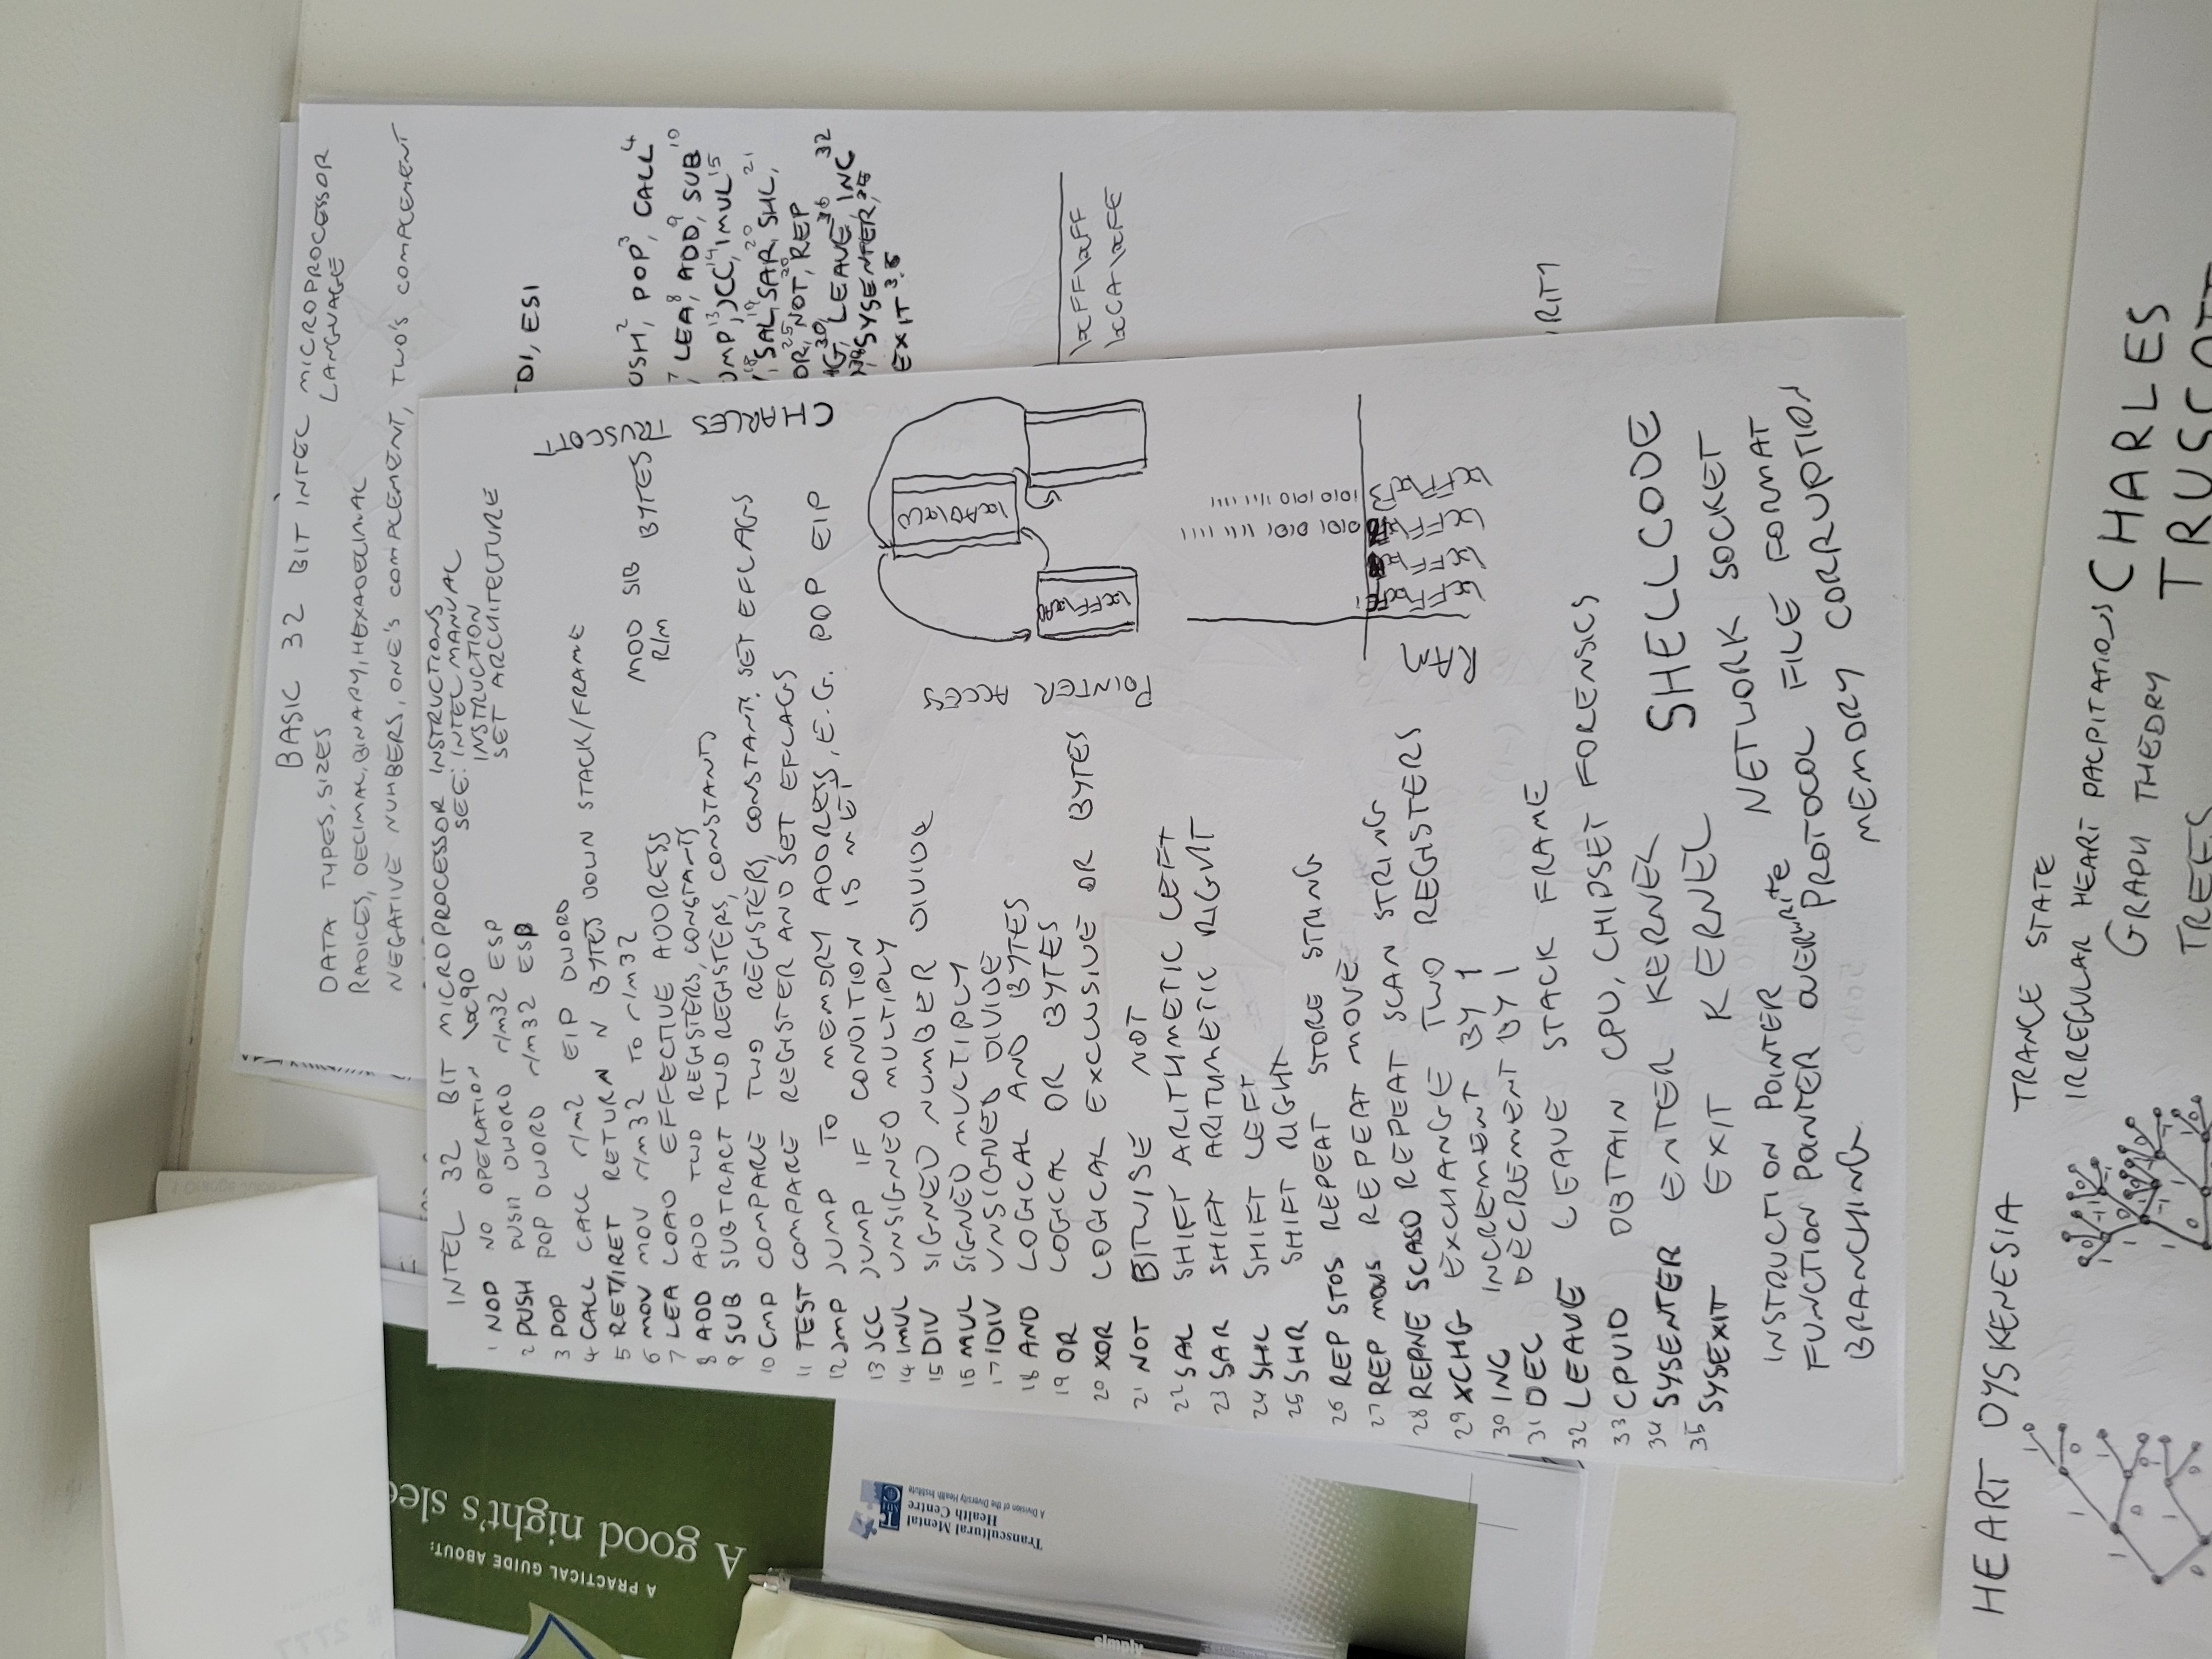 A PRACTICAL GUIDE ABOUT:
A good night's slee
Transcultural Mental
Health Centre
A Division of the Diversity Health Institute
BASIC 32 BIT INTEL MICROPROCESSOR
LANGUAGE
DATA TYPES, SIZES
RADICES, DECIMAL, BINARY, HEXADECIMAL
NEGATIVE NUMBERS, ONE'S COMPLEMENT, TWO'S COMPLEMENT
DI, ESI
USH,² POP,³ CALL⁴
⁷ LEA,⁸ ADD,⁹ SUB¹⁰
JMP,¹³ JCC,¹⁴ IMUL¹⁵
¹⁸ SAL,¹⁹ SAR,²⁰ SHL,²¹
OR,²⁵ NOT, REP
HG,³⁰ LEAVE, INC³²
SYSENTER,
EXIT
\xFF\xFF
\xCA\xFE
RITY
INTEL 32 BIT MICROPROCESSOR INSTRUCTIONS
SEE: INTEL MANUAL
INSTRUCTION
SET ARCHITECTURE
1 NOP NO OPERATION \x90
2 PUSH PUSH DWORD r/m32 ESP
3 POP POP DWORD r/m32 ESP
4 CALL CALL r/m2 EIP DWORD
5 RET/IRET RETURN N BYTES DOWN STACK/FRAME
6 MOV MOV r/m32 TO r/m32
7 LEA LOAD EFFECTIVE ADDRESS
MOD SIB BYTES
R/M
8 ADD ADD TWO REGISTERS, CONSTANTS
9 SUB SUBTRACT TWO REGISTERS, CONSTANTS
10 CMP COMPARE TWO REGISTERS, CONSTANTS. SET EFLAGS
11 TEST COMPARE REGISTER AND SET EFLAGS
12 JMP JUMP TO MEMORY ADDRESS, E.G. POP EIP
13 JCC JUMP IF CONDITION IS MET
14 IMUL UNSIGNED MULTIPLY
15 DIV SIGNED NUMBER DIVIDE
16 MUL SIGNED MULTIPLY
17 IDIV UNSIGNED DIVIDE
18 AND LOGICAL AND BYTES
19 OR LOGICAL OR BYTES
20 XOR LOGICAL EXCLUSIVE OR BYTES
21 NOT BITWISE NOT
22 SAL SHIFT ARITHMETIC LEFT
23 SAR SHIFT ARITHMETIC RIGHT
24 SHL SHIFT LEFT
25 SHR SHIFT RIGHT
26 REP STOS REPEAT STORE STRING
27 REP MOVS REPEAT MOVE
28 REPNE SCASD REPEAT SCAN STRING
29 XCHG EXCHANGE TWO REGISTERS
30 INC INCREMENT BY 1
31 DEC DECREMENT BY 1
32 LEAVE LEAVE STACK FRAME
33 CPUID OBTAIN CPU, CHIPSET FORENSICS
34 SYSENTER ENTER KERNEL
35 SYSEXIT EXIT KERNEL
CHARLES TRUSCOTT
POINTER ACCESS
RAM
0101 0101 1111 1111
1010 1010 1111 1111
SHELLCODE
NETWORK SOCKET
PROTOCOL FILE FORMAT
MEMORY CORRUPTION
INSTRUCTION POINTER
FUNCTION POINTER OVERWRITE
BRANCHING
HEART DYSKENESIA
TRANCE STATE
IRREGULAR HEART PALPITATIONS
GRAPH THEORY
TREES
CHARLES
TRUSCOTT